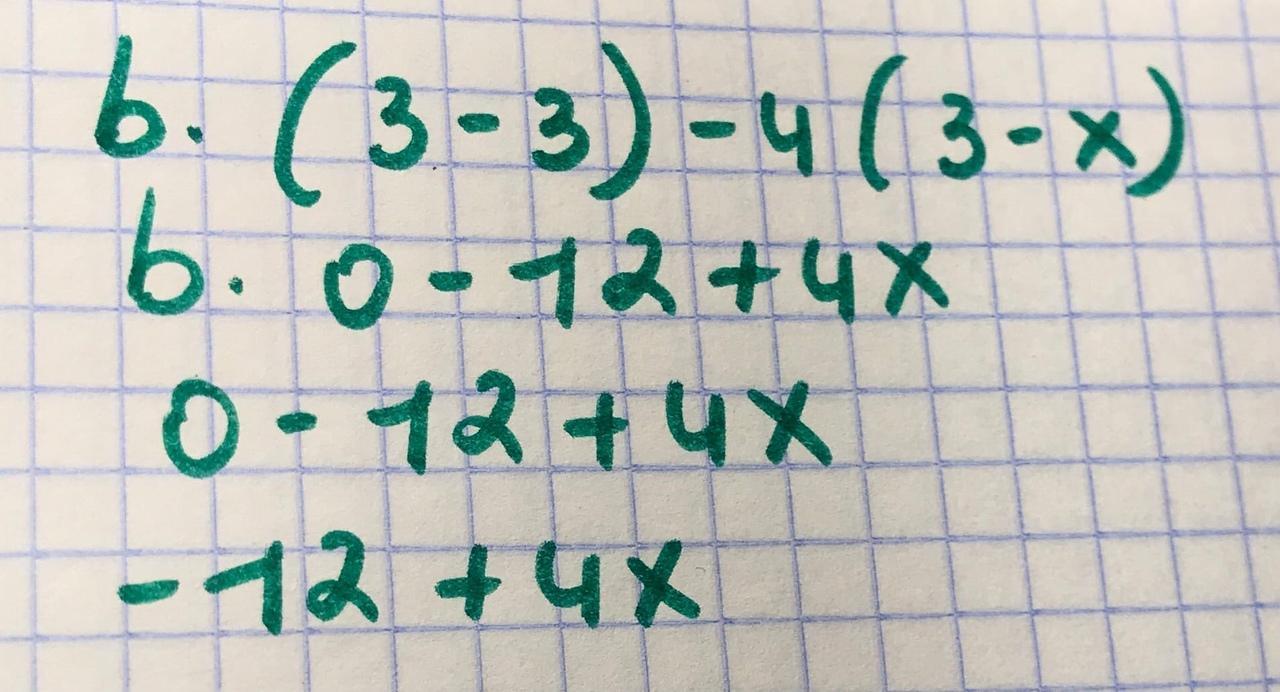 6. (3-3)-4(3-x)
6. 0-12+4x
0-12+4x
-12+4x